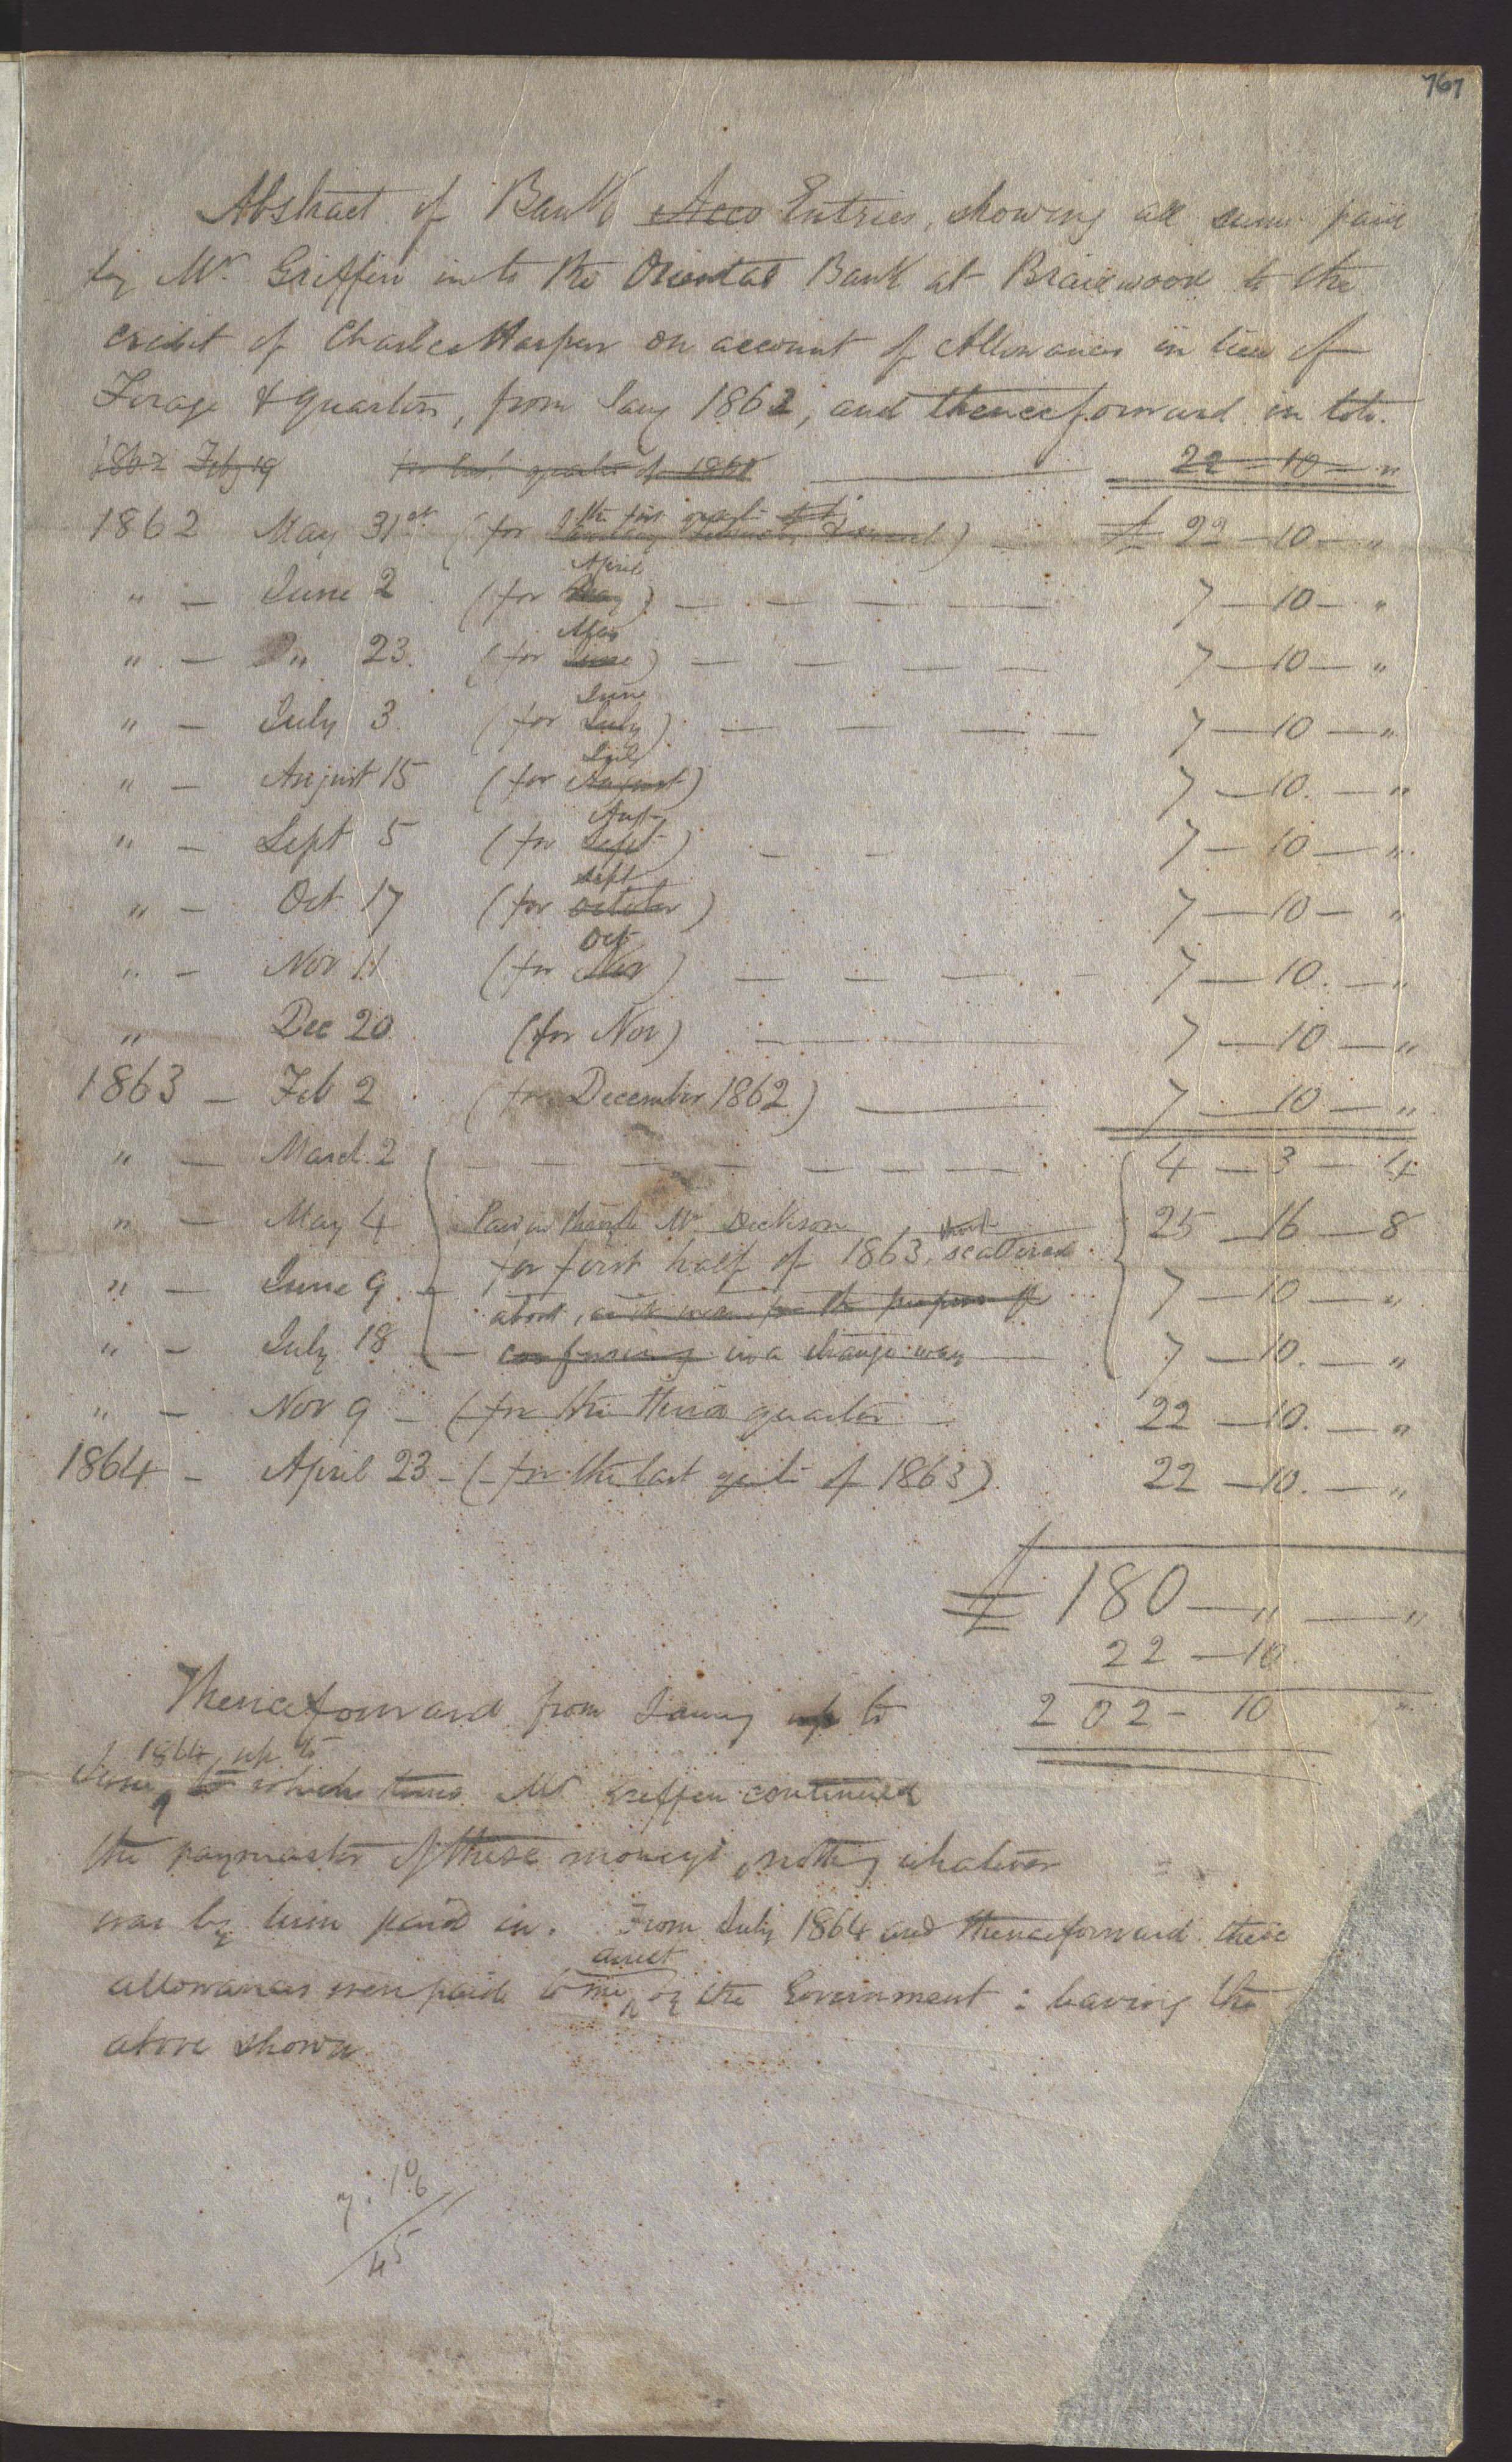 761
Abstract of Bank Acco Entries, showing all sums paid
by Mr Griffin into the Oriental Bank at Braidwood to the
credit of Charles Harpur on account of Allowances in lieu of
Forage & quarters, from Jany 1862, and thenceforward in toto.
1862 Feby 19 for last quarter of 1861 22 - 10 - "
1862 May 31st (for the first quarter January February & March) £ 22 - 10 - "
April
" - June 2 (for May) 7 - 10 - "
May
" - Do 23. (for June) 7 - 10 - "
June
" - July 3 (for July) 7 - 10 - "
July
" - August 15 (for August) 7 - 10. - "
Augt
" - Sept 5 (for Sept) 7 - 10 - "
Sept
" - Oct 17 (for October) 7 - 10 - "
Oct
" - Nov 11 (for Nov) 7 - 10. - "
" Dec 20 (for Nov) 7 - 10 - "
1863 - Feb 2 (for December 1862) 7 - 10 - "
" - March 2 4 - 3 - 4
" - May 4 Paid in through Mr Dickson 25 - 16 - 8
for first half of 1863, scattered
" - June 9 - 7 - 10 - "
about, as it were for the purpose of
" - July 18 - confusing in a strange way 7 - 10. - "
" - Nov 9 - (for the third quarter - 22 - 10. - "
1864 - April 23 - (for the last qurtr of 1863) 22 - 10. - "
£ 180 - " - "
22 - 10.
202 - 10 "
Thenceforward from January up to
1864, up to
June, to which time Mr Griffin continued
the paymaster of these moneys, nothing whatever
was by him paid in. From July 1864 and thenceforward these
direct
allowances were paid to me by the Government: leaving the
above shown
7. 10
6
45